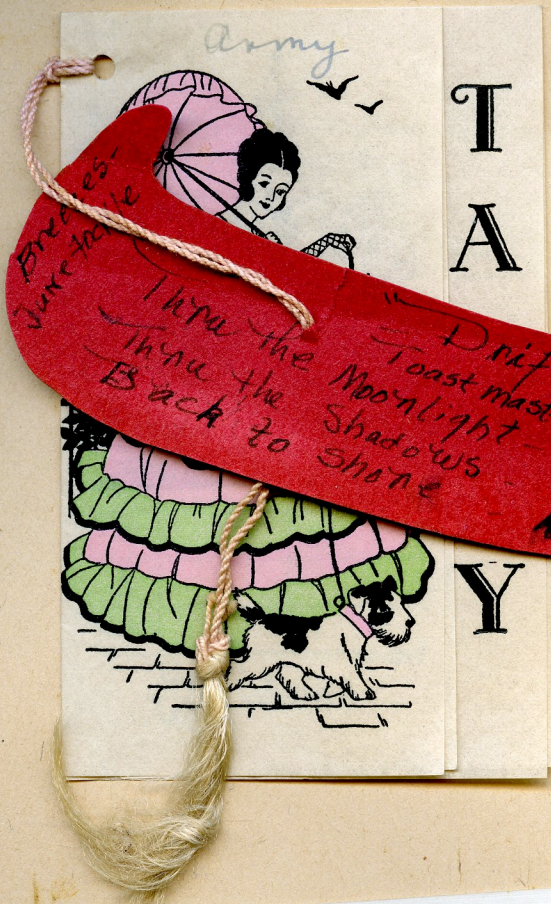 Army
T
A
Y
Breezes-
"Drif
Toastmast
Thru the Moonlight
Thru the Shadows
Back to Shore